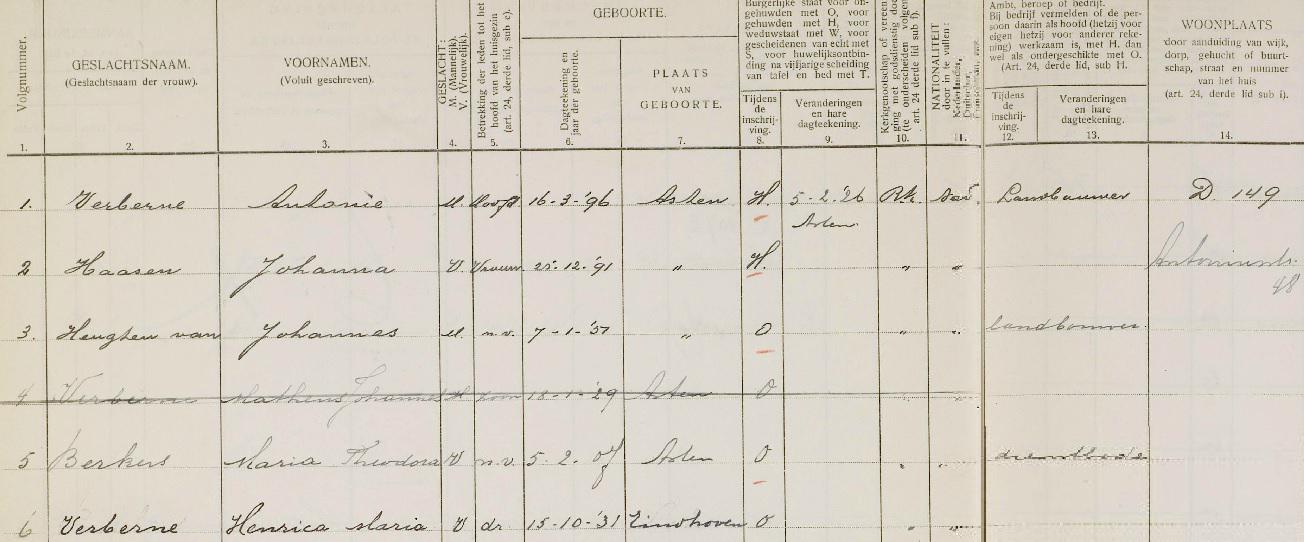 Volgnummer.
GESLACHTSNAAM.
(Geslachtsnaam der vrouw).
VOORNAMEN.
(Voluit geschreven).
GESLACHT:
M. (Mannelijk).
V. (Vrouwelijk).
Betrekking der leden tot het
hoofd van het huisgezin
(art. 24, derde lid, sub c).
GEBOORTE.
Dagteekening en
jaar der geboorte.
PLAATS
VAN
GEBOORTE.
Burgerlijke staat voor on-
gehuwden met O, voor
gehuwden met H, voor
weduwstaat met W, voor
gescheidenen van echt met
S, voor huwelijksontbin-
ding na vijfjarige scheiding
van tafel en bed met T.
Tijdens
de
inschrij-
ving.
Veranderingen
en hare
dagteekening.
Kerkgenootschap of vereeni-
ging met godsdienstig doel
(te onderscheiden volgens
art. 24 derde lid sub f).
NATIONALITEIT
door in te vullen:
Nederlander,
Duitscher,
Ambt, beroep of bedrijf.
Bij bedrijf vermelden of de per-
soon daarin als hoofd (hetzij voor
eigen hetzij voor anderer reke-
ning) werkzaam is, met H. dan
wel als ondergeschikte met O.
(Art. 24, derde lid, sub H.
Tijdens
de
inschrij-
ving.
Veranderingen
en hare
dagteekening.
WOONPLAATS
door aanduiding van wijk,
dorp, gehucht of buurt-
schap, straat en nummer
van het huis
(art. 24, derde lid sub i).
1. 2. 3. 4. 5. 6. 7. 8. 9. 10. 11. 12. 13. 14.
1. Verberne Antonie M. Hoofd 16-3-'96 Asten H. 5-2-'26 R.k. Ned. Landbouwer D. 149
Asten
2 Haasen Johanna V. Vrouw 25-12-'91 " H. " "
48
3. Heughen van Johannes M. n.v. 7-1-'51 " O " " landbouwer
4 Verberne Matheus Johannes M zoon 18-1-'29 Asten O
5 Berkers Maria Theodora V n.v. 5-2-07 Asten O " " dienstbode
6 Verberne Henrica Maria V dr. 15-10-'31 Eindhoven O " "